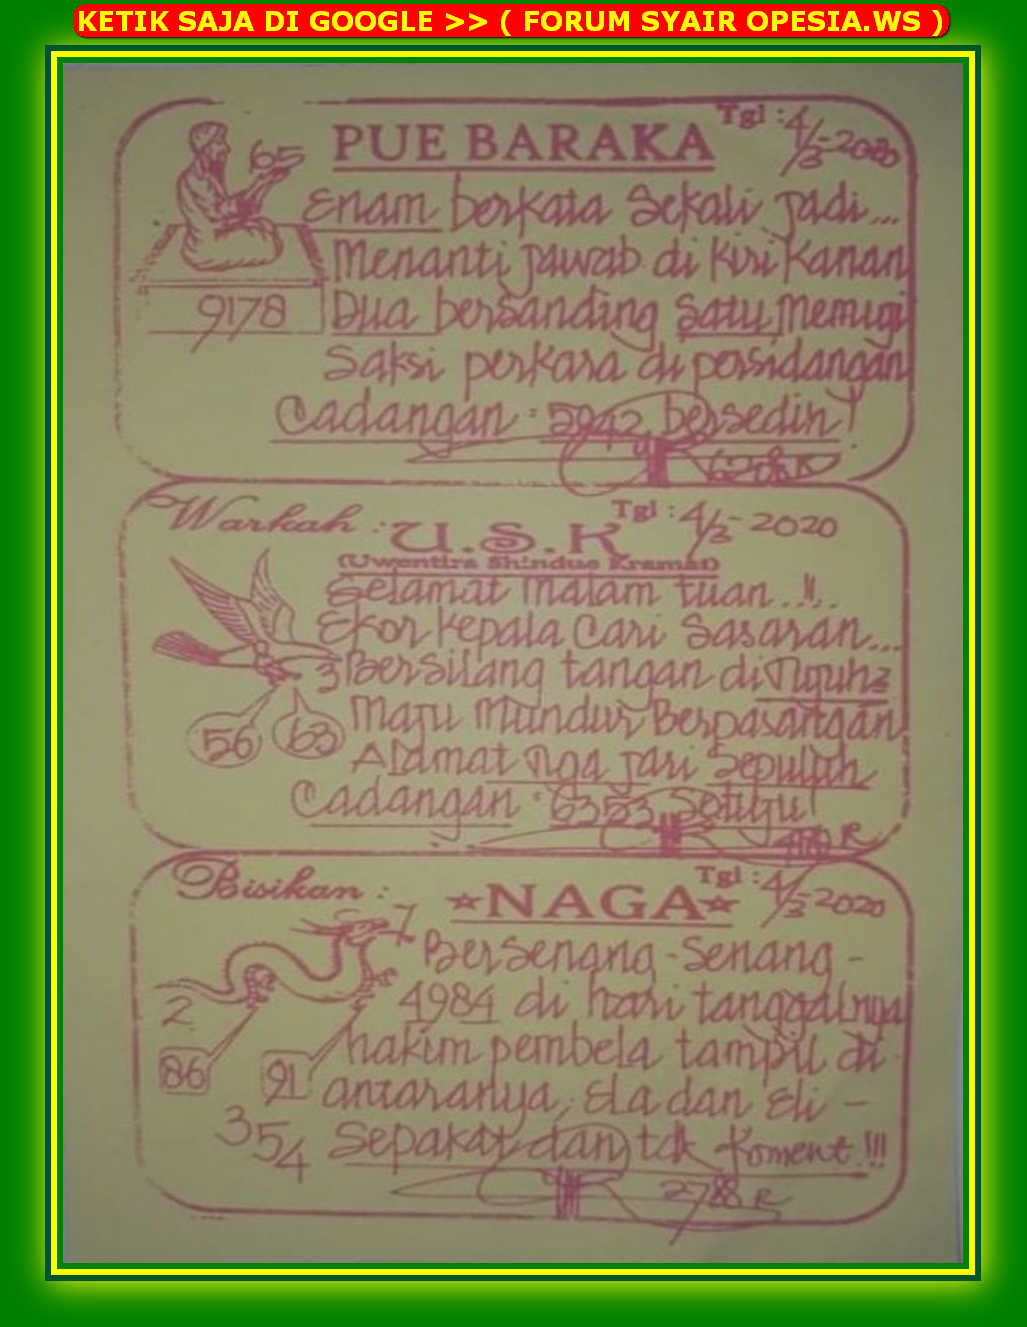 KETIK SAJA DI GOOGLE >> ( FORUM SYAIR OPESIA.WS )
PUE BARAKA
Tgl : 4/3-2020
65
Enam berkata sekali jadi...
Menanti jawab di kiri kanan
9178
Dua bersanding satu memuji
Saksi perkara di persidangan
Cadangan : 5942 bersedin!
Warkah :
U.S.K
Tgl : 4/3-2020
(Uwentira Shindue Kramat)
Selamat malam tuan..!!..
Ekor kepala cari sasaran...
3
Bersilang tangan di
56
63
Maju mundur Berpasangan
Alamat nga jari sepuluh
Cadangan : 6353 Setuju!
Bisikan :
NAGA
Tgl : 4/3-2020
7
Bersenang-senang -
2
4984 di hari tanggalnya
86
91
hakim pembela tampil di
antaranya, Ela dan Eli -
354
Sepakat dan tdk Koment.!!!
2788 R